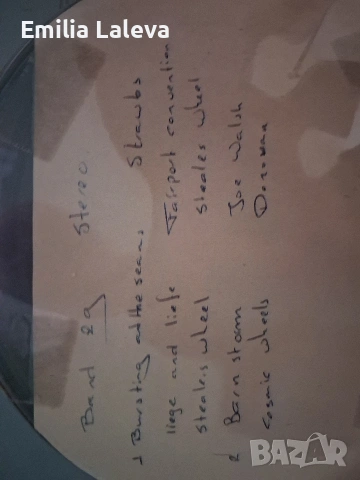 Emilia Laleva
Band 29 Stereo.
1 Bursting at the seams Strawbs
liege and liefe Fairport convention
Stealers wheel Stealers wheel
2 Barnstorm Joe Walsh
cosmic wheels Donovan
BAZAR